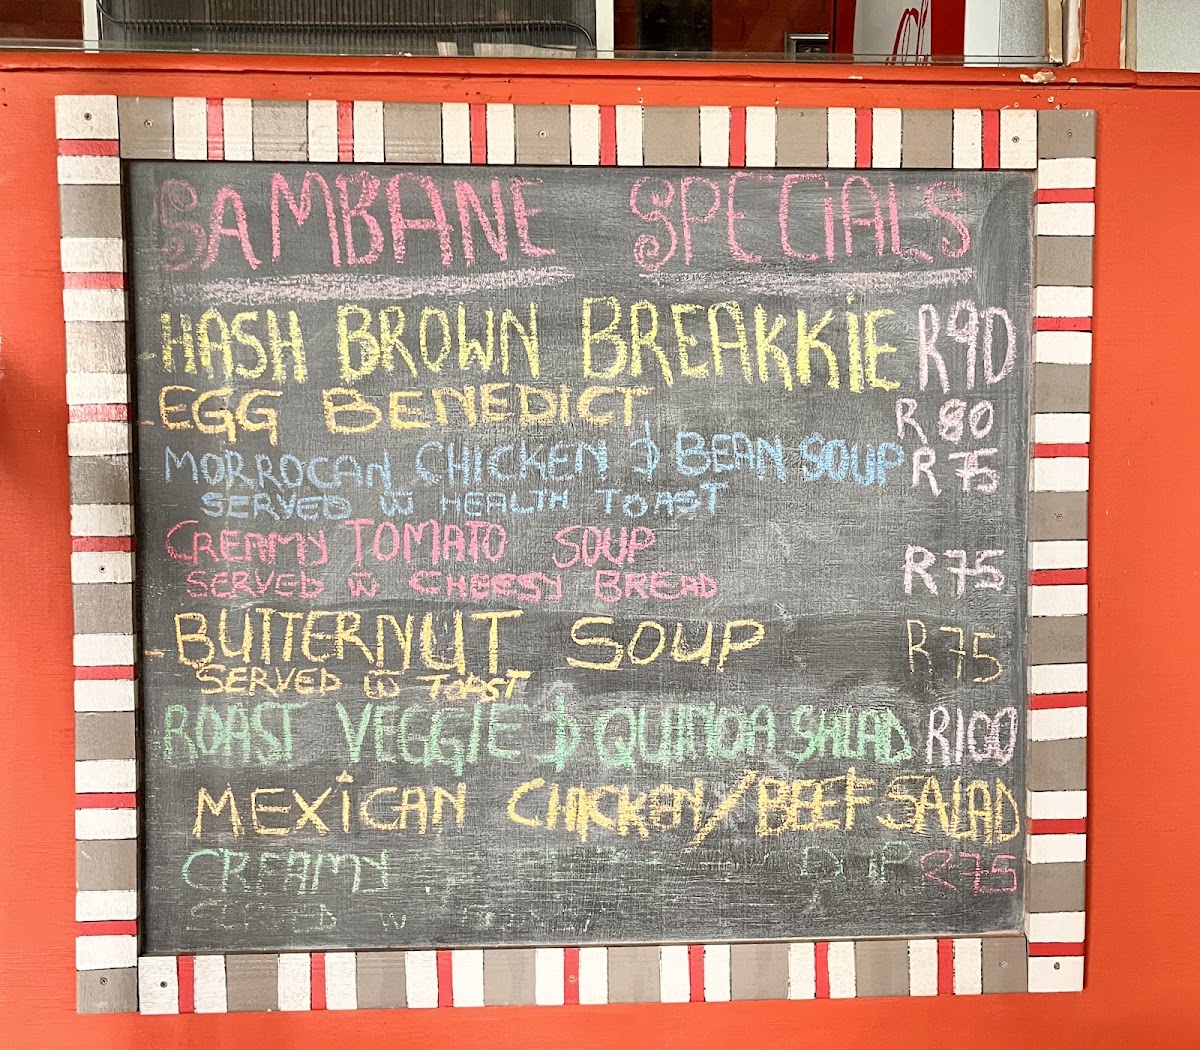 SAMBANE SPECIALS
HASH BROWN BREAKKIE R90
EGG BENEDICT R80
MORROCAN CHICKEN & BEAN SOUP R75
SERVED W HEALTH TOAST
CREAMY TOMATO SOUP
SERVED W CHEESY BREAD R75
BUTTERNUT SOUP R75
SERVED W TOAST
ROAST VEGGIE & QUINOA SALAD R100
MEXICAN CHICKEN/BEEF SALAD
CREAMY SOUP R75
SERVED W